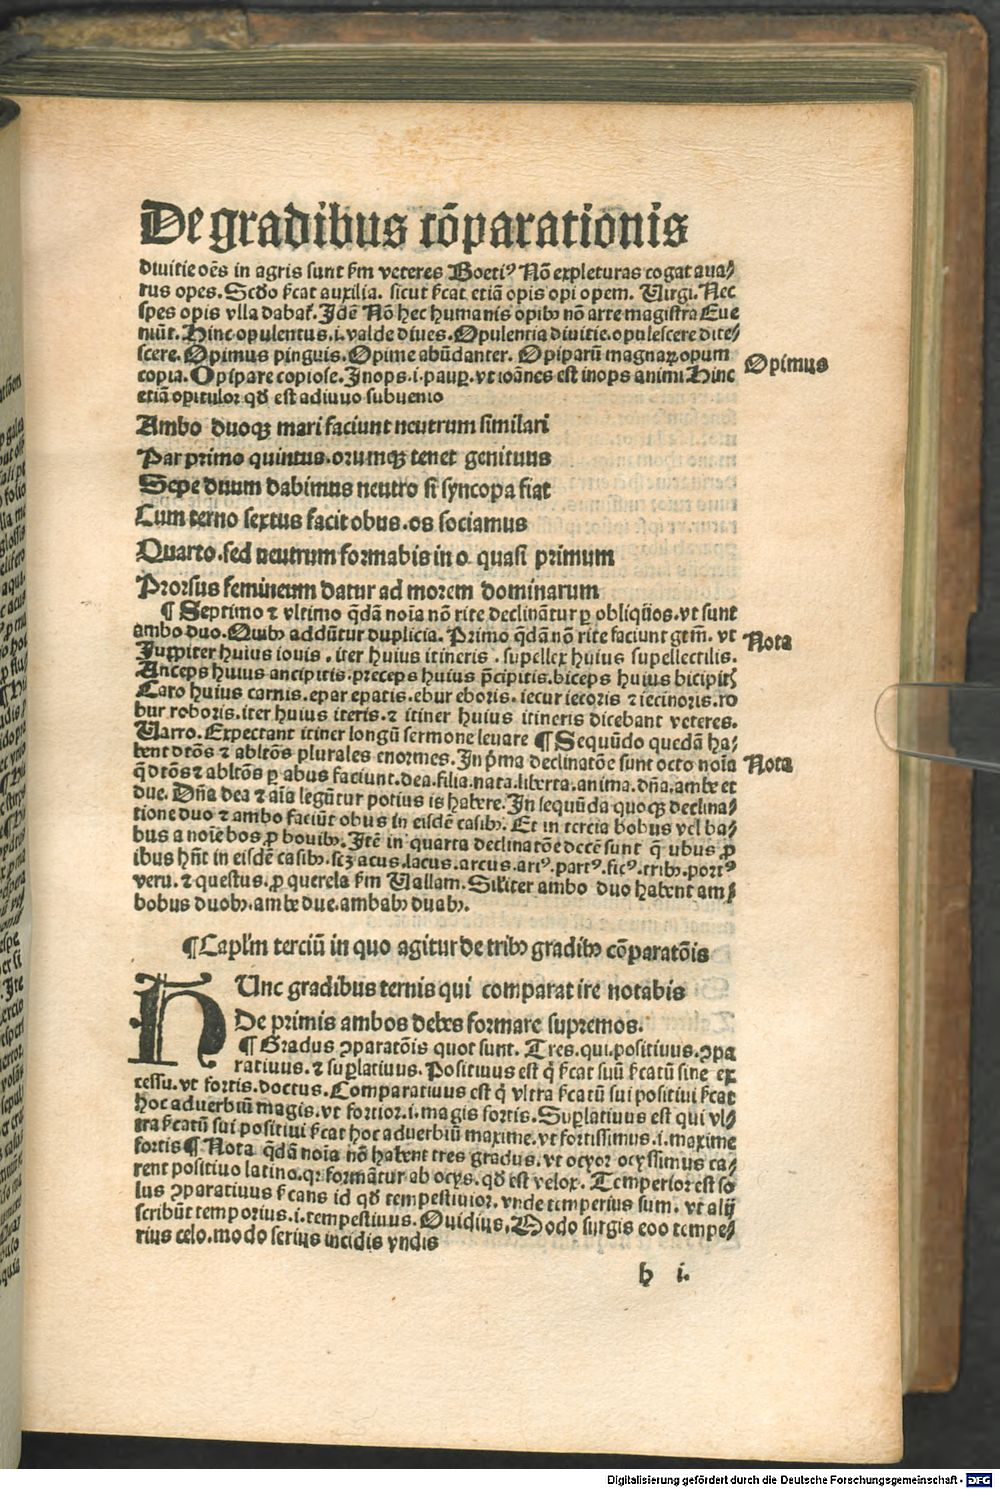 De gradibus cōparationis
diuitie oēs in agris sunt ẜm veteres Boeti⁹ Nō expleturas cogat aua⸗
rus opes. Scdo ẜcat auxilia. sicut ẜcat etiā opis opi opem. Uirgi. Nec
spes opis vlla dabat᷑. Idē Nō hec humanis opibꝫ nō arte magistra Eue
niūt. Hinc opulentus.i.valde diues. Opulentia diuitie.opulescere dite⸗
scere. Opimus pinguis. Opime abūdanter. Opiparū magnaꝝ opum
copia. Opipare copiose. Inops.i.pauꝑ.vt ioānes est inops animi Hinc
etiā opitulor qd est adiuuo subuenio
Opimus
Ambo duoqꝫ mari faciunt neutrum similari
Par primo quintus.orumqꝫ tenet genituus
Sepe duum dabimus neutro si syncopa fiat
Cum terno sextus facit obus.os sociamus
Quarto.sed neutrum formabis in o quasi primum
Prorsus femineum datur ad morem dominarum
¶ Septimo ⁊ vltimo qdā noīa nō rite declināntur ꝑ obliquos.vt sunt
ambo duo. Quibꝫ addūtur duplicia. Primo qdā nō rite faciunt gtm̄. vt
Nota
Iuppiter huius iouis.iter huius itineris.supellex huius supellectilis.
Anceps huius ancipitis.preceps huius p̄cipitis.biceps huius bicipitꝭ
Caro huius carnis.epar epatis.ebur eboris.iecur iecoris ⁊ iecinoris.ro
bur roboris.iter huius iteris.⁊ itiner huius itineris dicebant veteres.
Uarro. Expectant itiner longū sermone leuare ¶ Secūdo quedā ha⸗
bent dtōs ⁊ abltōs plurales enormes. In p̄ma declinatōe sunt octo noīa
Nota
q̄ dtōs ⁊ abltōs ꝑ abus faciunt.dea.filia.nata.liberta.anima.dn̄a.ambe et
due. Dn̄a dea ⁊ aīa legūtur potius is habere. In secunda quoqꝫ declina⸗
tione duo ⁊ ambo faciūt obus in eisdē casibꝫ. Et in tercia bobus vel ba⸗
bus a noīe bos ꝓ bouibꝫ. Itē in quarta declinatōe decē sunt q̄ ubus ꝓ
ibus hn̄t in eisdē casibꝫ.scꝫ acus.lacus.arcus.art⁹.part⁹.fic⁹.tribꝫ.port⁹
veru.⁊ questus.ꝓ querela ẜm Uallam. Siliter ambo duo habent am⸗
bobus duobꝫ.ambe due.ambabꝫ duabꝫ.
¶ Caplm̄ terciū in quo agitur de tribꝫ gradibꝫ cōparatōis
HUnc gradibus ternis qui comparat ire notabis
De primis ambos debes formare supremos.
¶ Gradus ꝯparatōis quot sunt. Tres.qui.positiuus.ꝯpa
ratiuus.⁊ suꝑlatiuus. Positiuus est q̄ ẜcat suū ẜcatū sine ex
cessu.vt fortis.doctus. Comparatiuus est q̄ vltra ẜcatū sui positiui ẜcat
hoc aduerbiū magis.vt fortior.i.magis fortis. Suꝑlatiuus est qui vl⸗
tra ẜcatū sui positiui ẜcat hoc aduerbiū maxime.vt fortissimus.i.maxime
fortis ¶ Nota qdā noīa nō habent tres gradus.vt ocyor ocyssimus ca⸗
rent positiuo latino.qꝛ formātur ab ocys.qd est velox. Temperior est so
lus ꝯparatiuus ẜcans id qd tempestiuior.vnde temperius sum. vt alij
scribūt temporius.i.tempestiuus. Ouidius, Modo surgis eoo tempe⸗
rius celo.modo serius incidis vndis
h i.
Digitalisierung gefördert durch die Deutsche Forschungsgemeinschaft - DFG